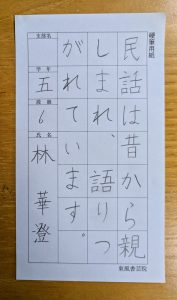 硬筆用紙
民話は昔から親
しまれ、語りつ
がれています。
支部名
学年
五
段級
6
氏名
林 華澄
東風書芸院